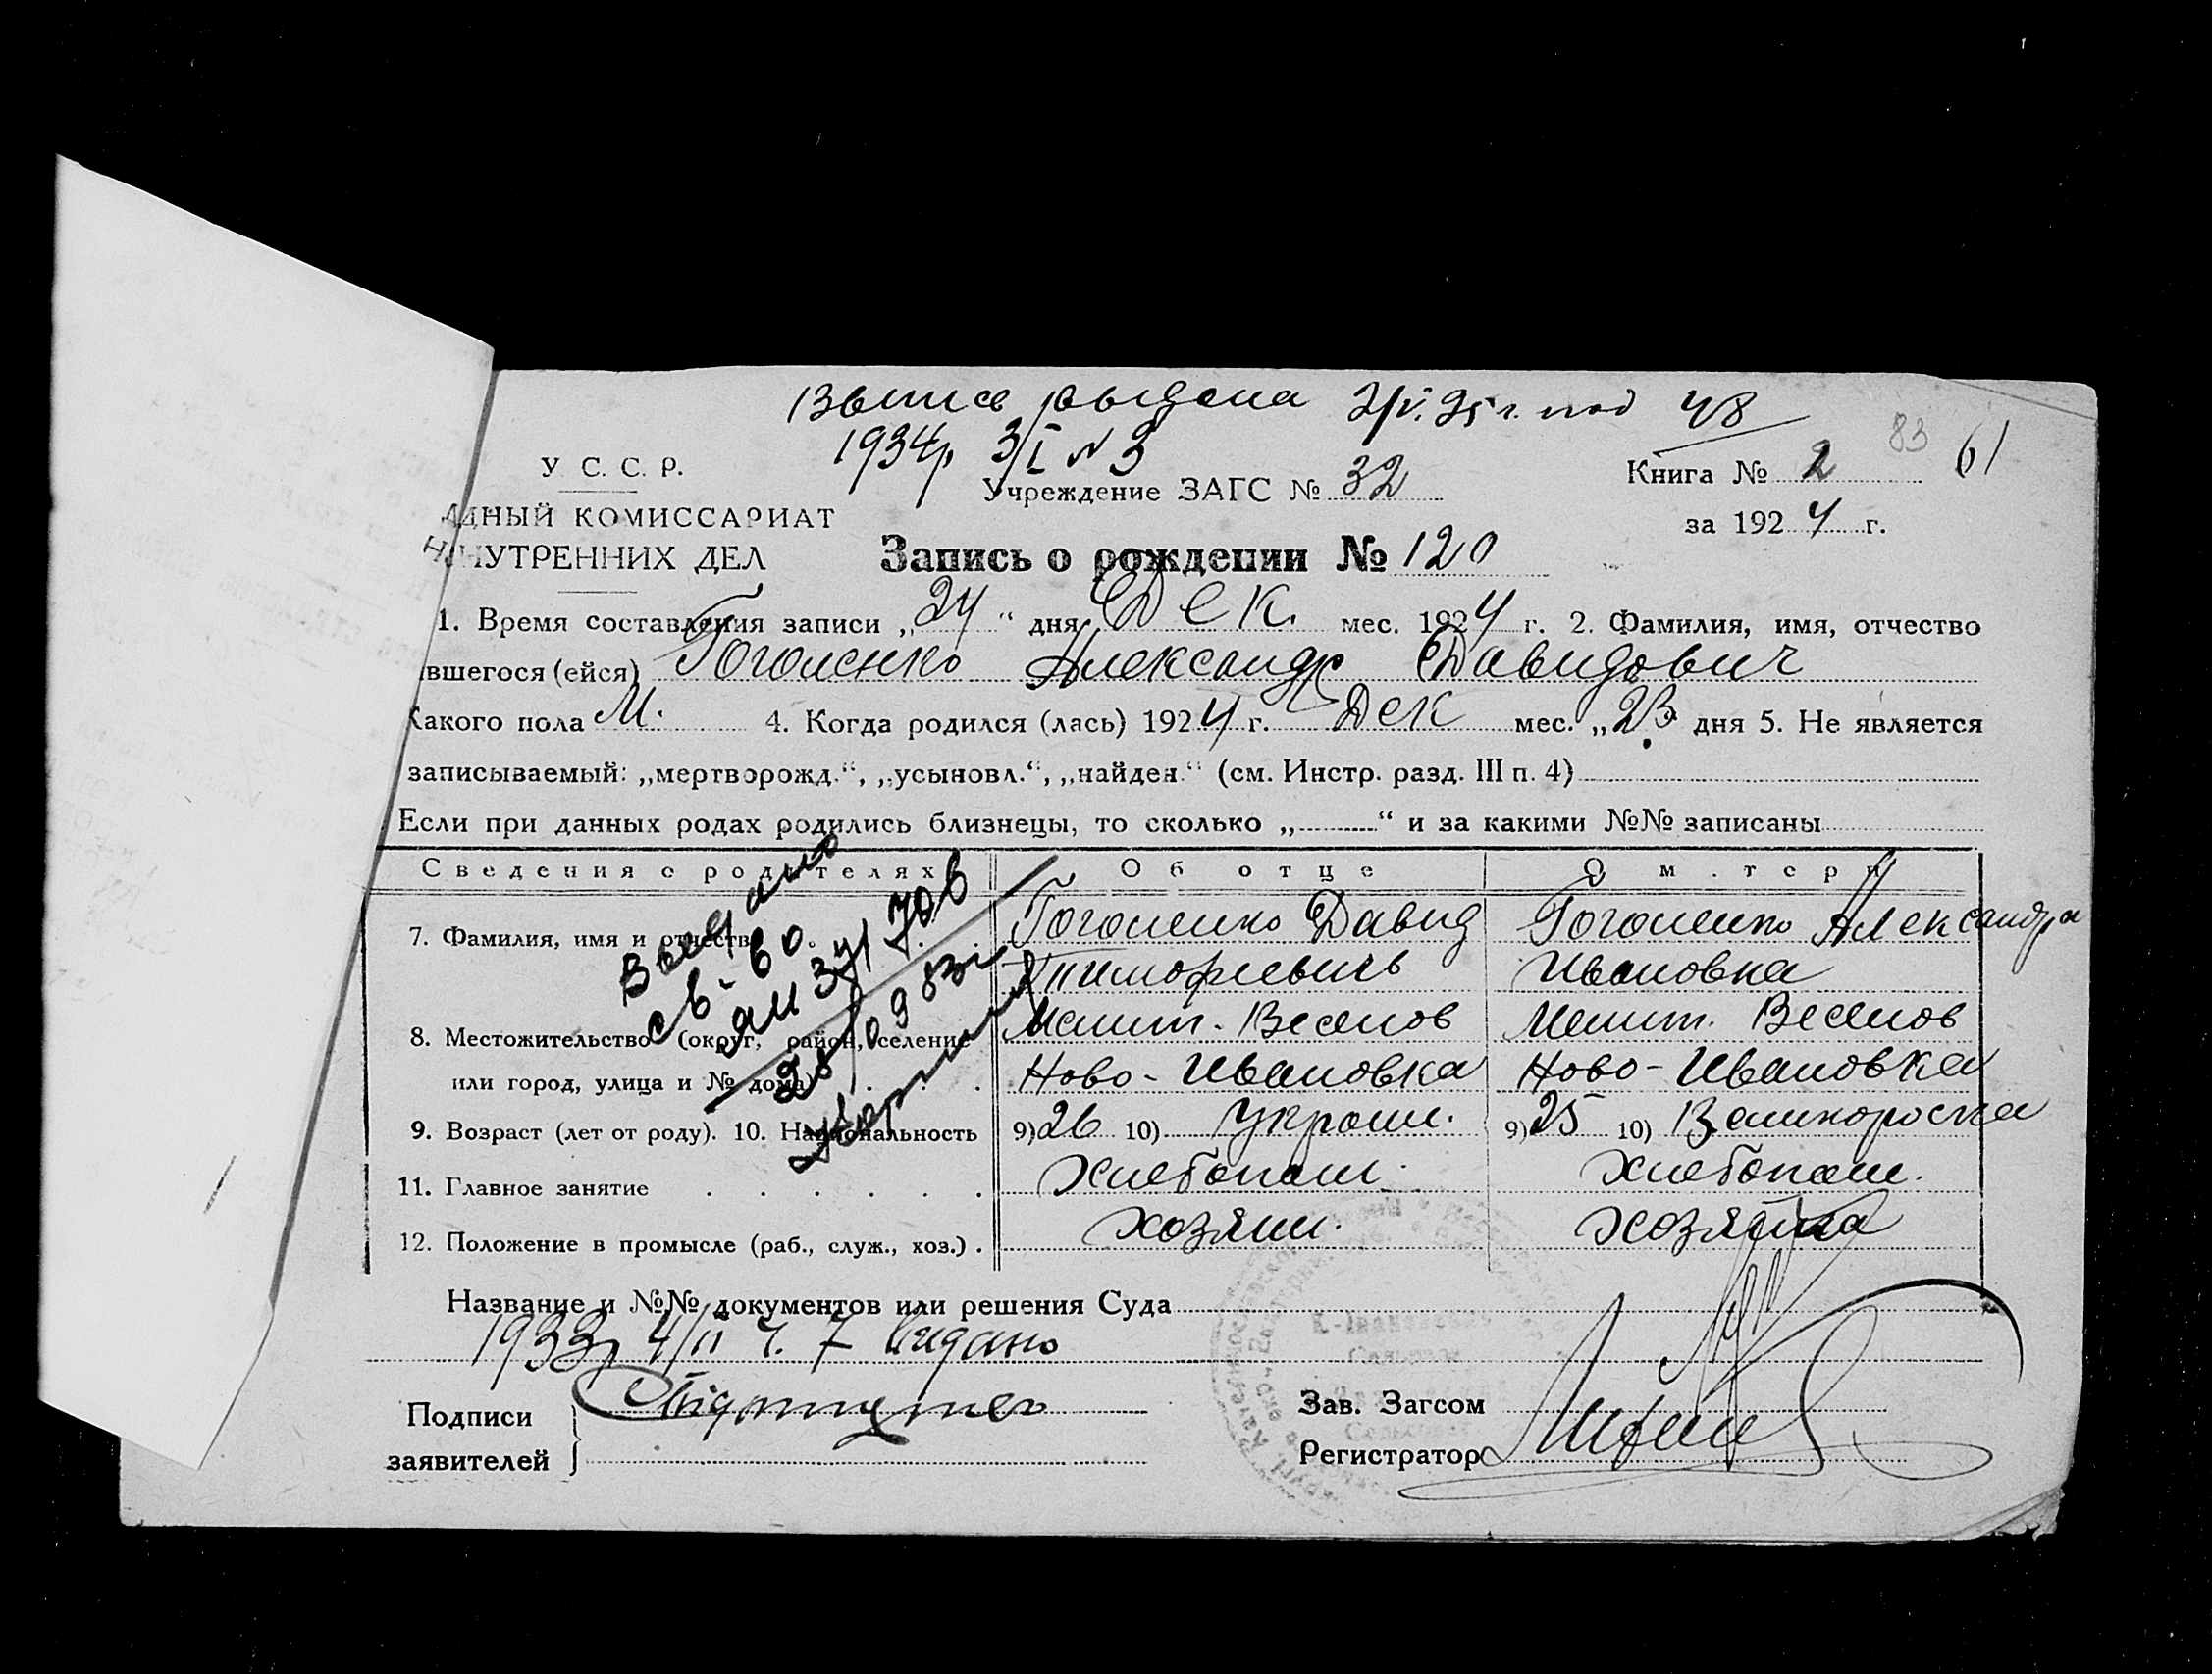 Выпись выдана 2/V.35 г. под 48
1934р 3/I N 3
83 61
У. С. С. Р.
Учреждение ЗАГС № 32
Книга № 2
АДНЫЙ КОМИССАРИАТ
за 1924 г.
НУТРЕННИХ ДЕЛ
Запись о рождении № 120
1. Время составления записи „24“ дня Дек. мес. 1924 г. 2. Фамилия, имя, отчество
вшегося (ейся) Гоголенко Александр Давидович
Какого пола М. 4. Когда родился (лась) 1924 г. Дек мес. „23 дня 5. Не является
записываемый: „мертворожд.“, „усыновл.“, „найден.“ (см. Инстр. разд. III п. 4)
Если при данных родах родились близнецы, то сколько „ “ и за какими №№ записаны
Сведения о родителях Об отце О м.тери
7. Фамилия, имя и отчество Гоголенко Давид Гоголенко Александра
Тимофеевичь Ивановна
8. Местожительство (округ, район, селение Мелит. Веселов Мелит. Веселов
или город, улица и № дома) Ново-Ивановка Ново-Ивановка
9. Возраст (лет от роду). 10. Национальность 9) 26 10) Украин. 9) 25 10) Великороска
11. Главное занятие Хлебопаш. Хлебопаш.
12. Положение в промысле (раб., служ., хоз.) хозяин. хозяйка
Видано
св-во
Название и №№ документов или решения Суда
1933р 4/II ч. 7 видано
Подписи
заявителей
Зав. Загсом
Регистратор